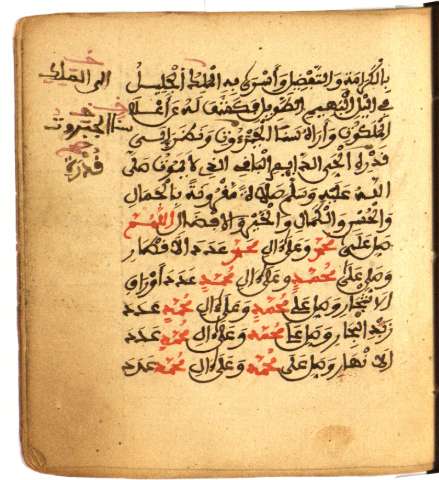 بِالْكَرَامَةِ وَالتَّفْضِيلِ وَأَسْرَى بِهِ الْمَلِكُ الْجَلِيلُ
فِي اللَّيْلِ الْبَهِيمِ الطَّوِيلِ فَكَشَفَ لَهُ عَنْ أَعْلَى
الْمَلَكُوتِ وَأَرَاهُ سَنَا الْجَبَرُوتِ وَنَظَرَ إِلَى
قُدْرَةِ الْحَيِّ الدَّايِمِ الْبَاقِي الَّذِي لَا يَمُوتُ صَلَّى
اللَّهُ عَلَيْهِ وَسَلَّمَ صَلَاةً مَقْرُونَةً بِالْجَمَالِ
وَالْحُسْنِ وَالْكَمَالِ وَالْخَيْرِ وَالْإِفْضَالِ اللَّهُمَّ
صَلِّ عَلَى مُحَمَّدٍ وَعَلَى آلِ مُحَمَّدٍ عَدَدَ الْأَقْطَارِ
وَصَلِّ عَلَى مُحَمَّدٍ وَعَلَى آلِ مُحَمَّدٍ عَدَدَ أَوْرَاقِ
الْأَشْجَارِ وَصَلِّ عَلَى مُحَمَّدٍ وَعَلَى آلِ مُحَمَّدٍ عَدَدَ
زَبَدِ الْبِحَارِ وَصَلِّ عَلَى مُحَمَّدٍ وَعَلَى آلِ مُحَمَّدٍ عَدَدَ
الْأَنْهَارِ وَصَلِّ عَلَى مُحَمَّدٍ وَعَلَى آلِ مُحَمَّدٍ عَدَدَ
الى الملك
سنا الجبروت
قدرة